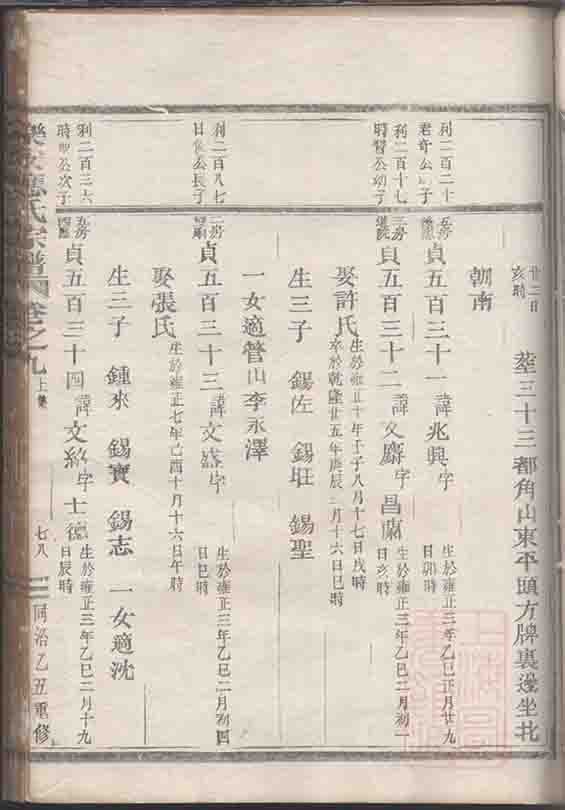 廿二日亥時 塟三十三都角山東平頭方牌裏邊坐北
朝南
利二百二十君奇公子
五房 貞五百三十一 諱兆興 字 生於雍正三年乙巳正月廿九日卯時
利二百十七時公幼子
三房 貞五百三十二 諱文麟 字昌蘭 生於雍正三年乙巳二月初一日亥時
娶許氏 生於雍正十年壬子八月十七日戌時 卒於乾隆廿五年庚辰二月十六日巳時
生三子 錫佐 錫旺 錫聖
一女適管山李永澤
利二百八七日公長子
二房 貞五百三十三 諱文盛 字 生於雍正三年乙巳二月初四日巳時
娶張氏 生於雍正七年己酉十月十六日午時
生三子 鍾來 錫寶 錫志 一女適沈
利二百三六時公次子
五房 貞五百三十四 諱文 字士德 生於雍正三年乙巳二月十九日辰時
應氏宗譜 卷之九 上集 七八 同治乙丑重修